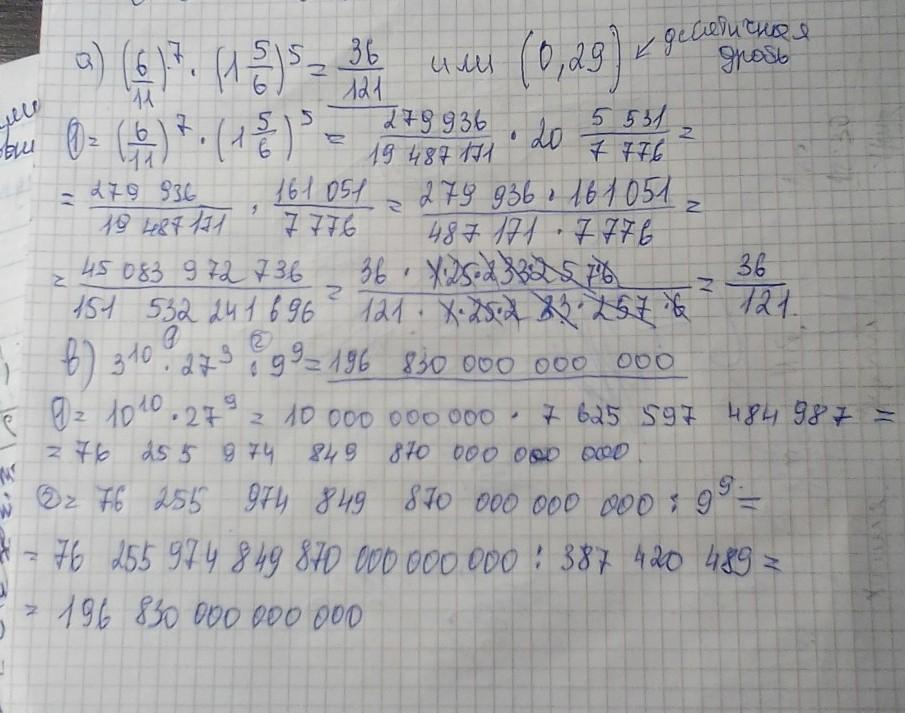 а) (6/11)^7 · (1 5/6)^5 = 36/121 или (0,29) ↙ десятичная дробь
① = (6/11)^7 · (1 5/6)^5 = 279 936/19 487 171 · 20 5 531/7 776 =
= 279 936/19 487 171 · 161 051/7 776 = 279 936 · 161 051/487 171 · 7 776 =
= 45 083 972 736/151 532 241 696 = 36 · / 121 · = 36/121.
в) 3^10 ① · 27^9 ② : 9^9 = 196 830 000 000 000
① = 10^10 · 27^9 = 10 000 000 000 · 7 625 597 484 987 =
= 76 255 974 849 870 000 000 000.
② = 76 255 974 849 870 000 000 000 : 9^9 =
= 76 255 974 849 870 000 000 000 : 387 420 489 =
= 196 830 000 000 000